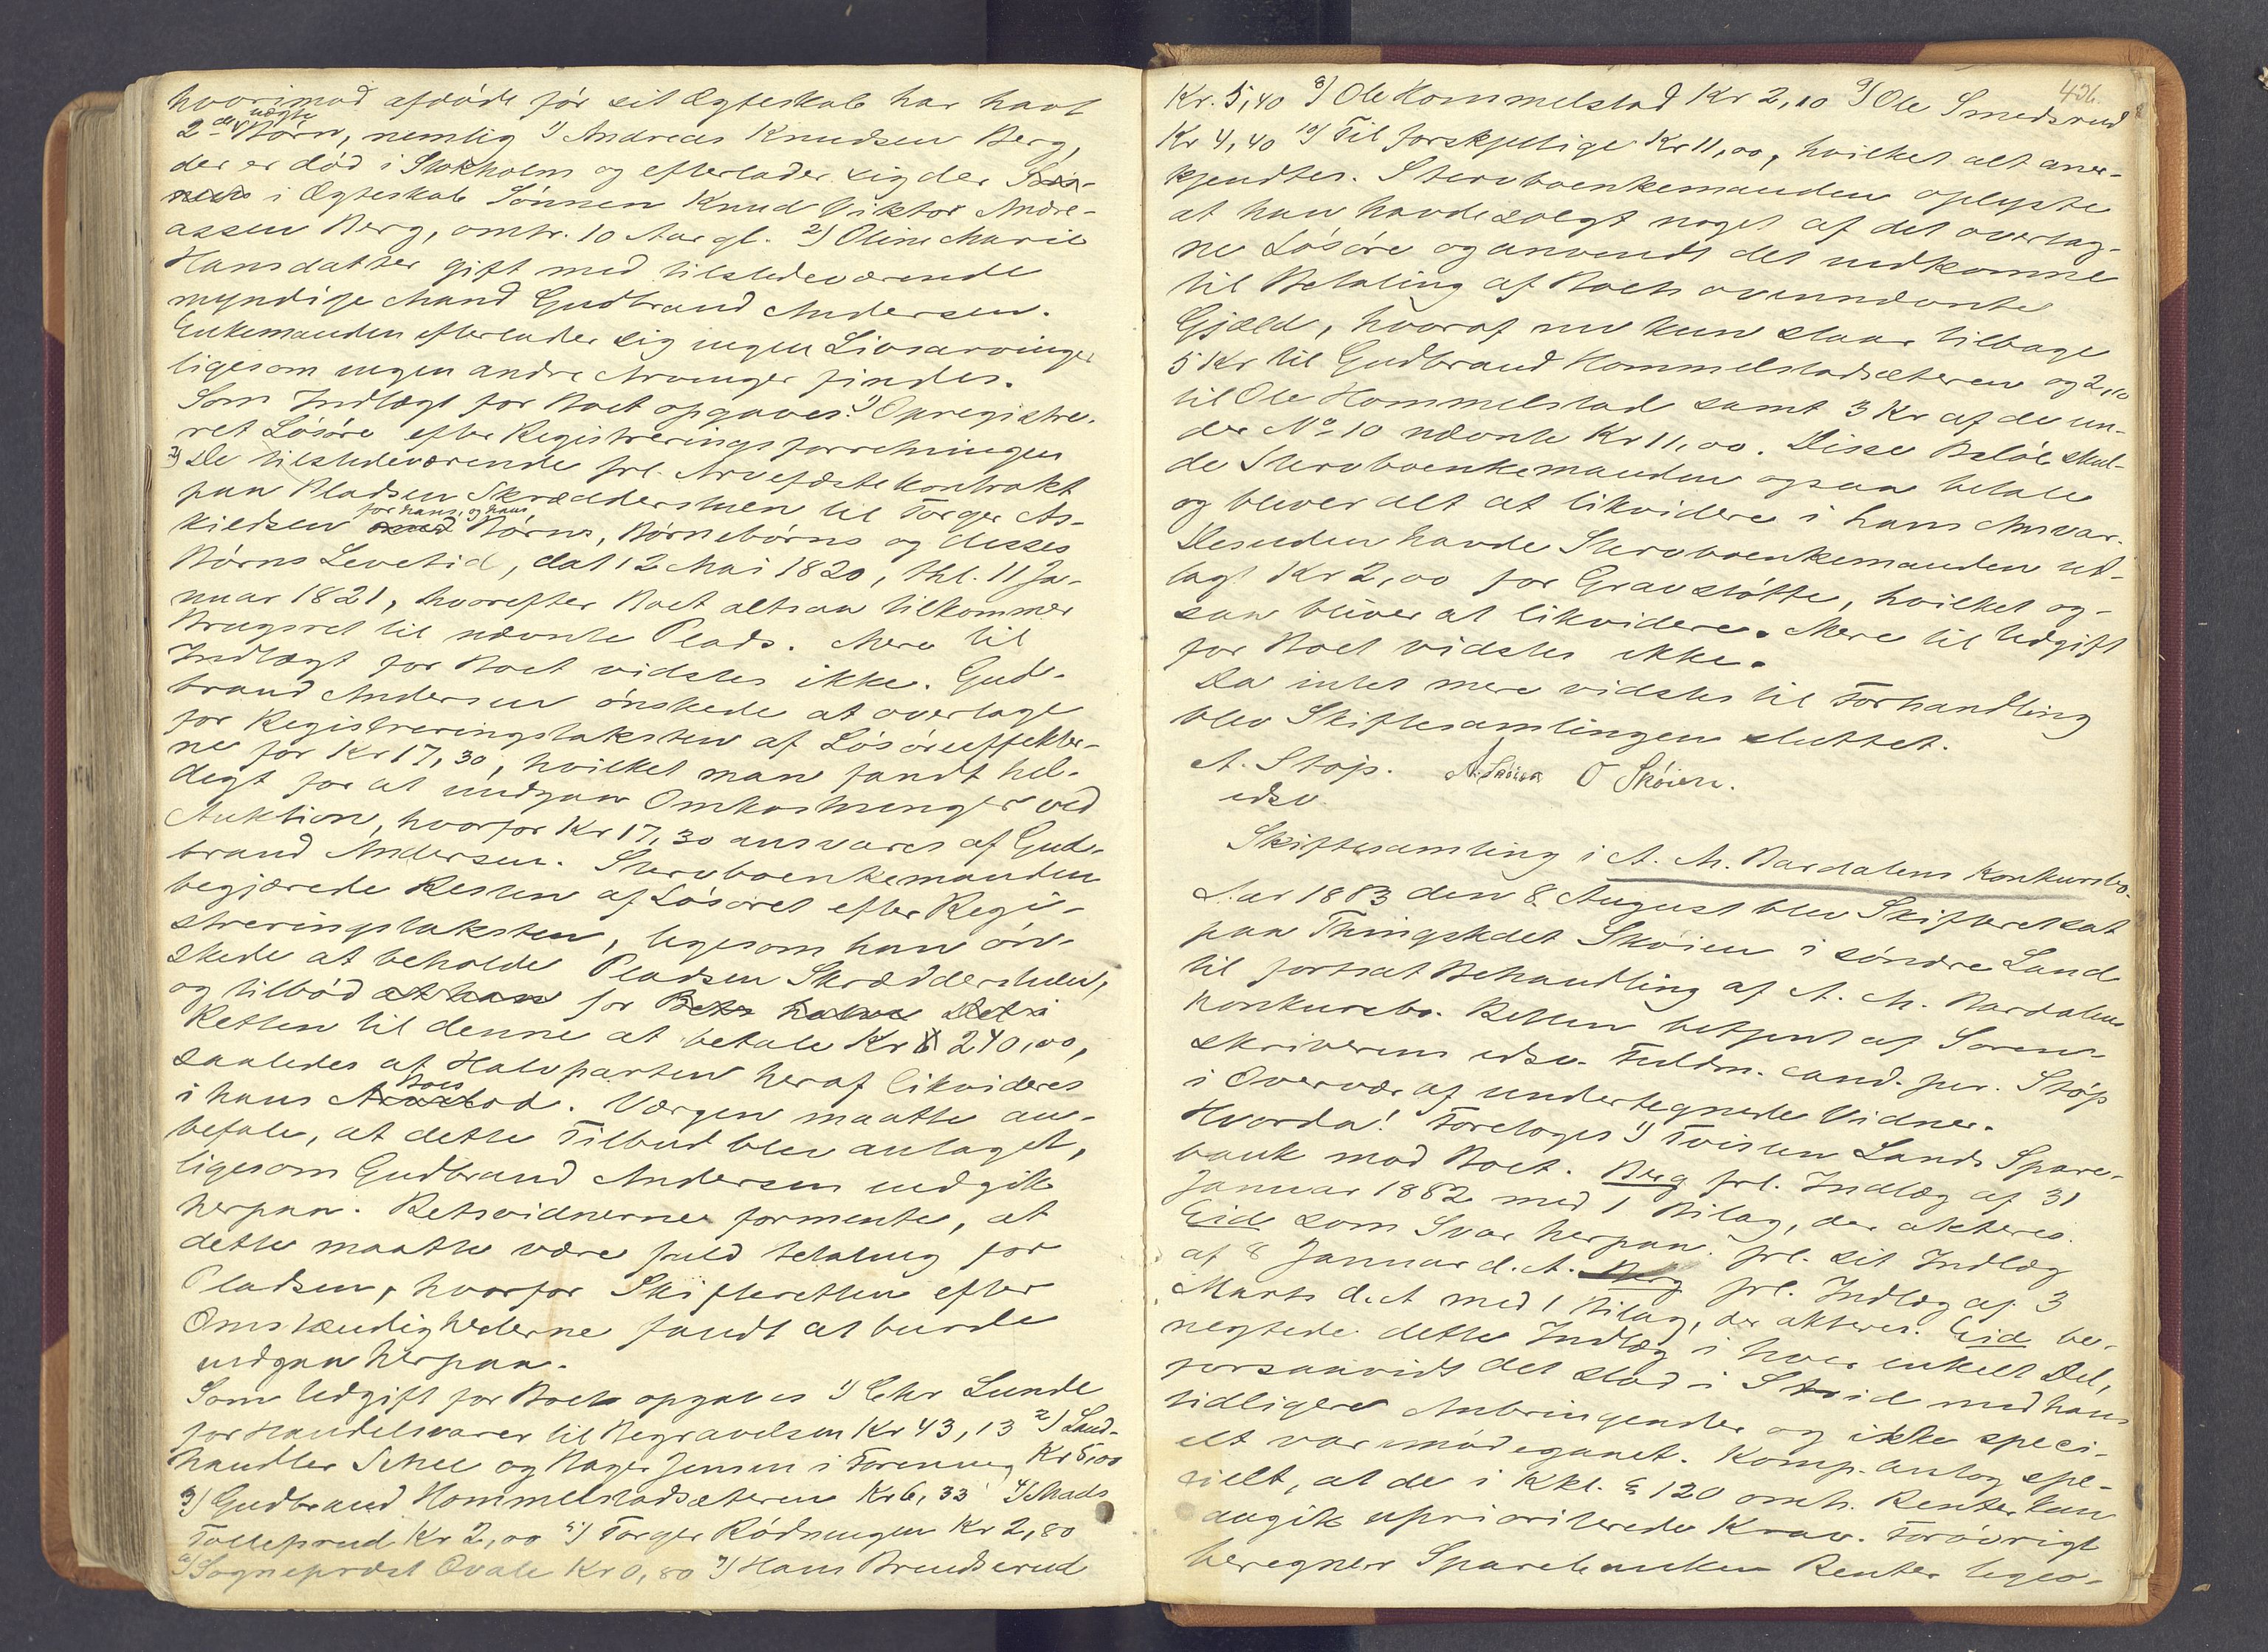 hvorimod afdøde før sit Ægteskab har havt
2de uægte Børn, nemlig 1) Andreas Knudsen Berg,
der er død i Stokholm og efterlader sig der
i Ægteskab Sønnen Knud Viktor Andre-
assen Berg, omtr. 10 Aar gl. 2) Oline Marie
Hansdatter gift med tilstedeværende
myndige Mand Gudbrand Andersen.
Enkemanden efterlader sig ingen Livsarvinger
ligesom ingen andre Arvinger findes.
Som Indtægt for Boet opgaves: 1) Opregistre-
ret Løsøre efter Registreringsforretningen
2) De tilstedeværende frl. Arvefæstekontrakt
paa Pladsen Skrædderstuen til Torger As-
kildsen for hans, og hans Børns, Børnebørns og disses
Børns Levetid, dat 12 Mai 1820, thl. 11 Ja-
nuar 1821, hvorefter Boet altsaa tilkommer
Brugsret til nævnte Plads. Mere til
Indtægt for Boet vidstes ikke. Gud-
brand Andersen ønskede at overtage
for Registreringstaksten af Løsøreeffekter-
ne for Kr 17,30, hvilket man fandt hel-
digt for at undgaa Omkostninger ved
Auktion, hvorfor Kr 17,30 ansvares af Gud-
brand Andersen. Stervboenkemanden
begjærede Resten af Løsøret efter Regi-
streringstaksten, ligesom han øn-
skede at beholde Pladsen Skrædderstuen,
og tilbød at han for Bets halve Det i
Retten til denne at betale Kr 240,00,
saaledes at Halvparten heraf likvideres
i hans Boeslod. Værgen maatte an-
befale, at dette Tilbud blev antaget,
ligesom Gudbrand Andersen indgik
herpaa. Retsvidnerne formente, at
dette maatte være fuld betaling for
Pladsen, hvorfor Skifteretten efter
Omstændighederne fandt at burde
indgaa herpaa.
Som Udgift for Boet opgaves 1) Chr Lunde
for Handelsvarer til Begravelsen Kr 43,13 2) Land-
handler Schee og Bager Jensen i Forening Kr 5,00
3) Gudbrand Hommelstadsæteren Kr 6,33 4) Mads
Tolleprud Kr 2,00 5) Torger Rødningen Kr 2,80
6) Sogneprest Qvale Kr 0,80 7) Hans Brendserud
436.
Kr. 5,40 8) Ole Hommelstad Kr 2,10 9) Ole Smedsrud
Kr 4,40 10) Til forskjellige Kr 11,00, hvilket alt aner-
kjendtes. Stervboenkemanden oplyste
at han havde solgt noget af det overtag-
ne Løsøre og anvendt det indkomne
til Betaling af Boets ovennævnte
Gjæld, hvoraf nu kun staar tilbage
5 Kr til Gudbrand Hommelstadsæteren og 2,10
til Ole Hommelstad samt 3 Kr af de un-
der No 10 nævnte Kr 11,00. Disse Beløb skul-
de Stervboenkemanden ogsaa betale
og bliver alt at likvidere i hans Ansvar.
Desuden havde Stervboenkemanden ud-
lagt Kr 2,00 for Gravstøtte, hvilket og-
saa bliver at likvidere. Mere til Udgift
for Boet vidstes ikke.
Da intet mere vidstes til Forhandling
blev Skiftesamlingen sluttet.
A. Støp. A. Skøien O Skøien.
edsv.
Skiftesamling i A. M. Bardalens Konkursbo.
Aar 1883 den 8. August blev Skifteret sat
paa Thingstedet Skøien i søndre Land
til fortsat Behandling af A. M. Bardalens
Konkursbo. Retten betjent af Soren-
skriverens edsv. Fuldm. cand. jur. Støp
i Overvær af undertegnede Vidner.
Hvorda! Foretoges 1) Tvisten Lands Spare-
bank mod Boet. Berg frl. Indlæg af 31
Januar 1882 med 1 Bilag, der akteres.
Eid som Svar herpaa frl. sit Indlæg
af 8 Januar d. A. Berg frl. Indlæg af 3
Marts d. A med 1 Bilag, der akteres. Eid be-
negtede dette Indlæg i hver enkelt Del,
forsaavidt det stod i Strid med hans
tidligere Anbringender og ikke speci-
elt var imødegaaet. Komp. antog spe-
cielt, at de i Kkl. § 120 omh. Renter kun
angik uprioriterede Krav. Forøvrigt
beregner Sparebanken Renter liges-